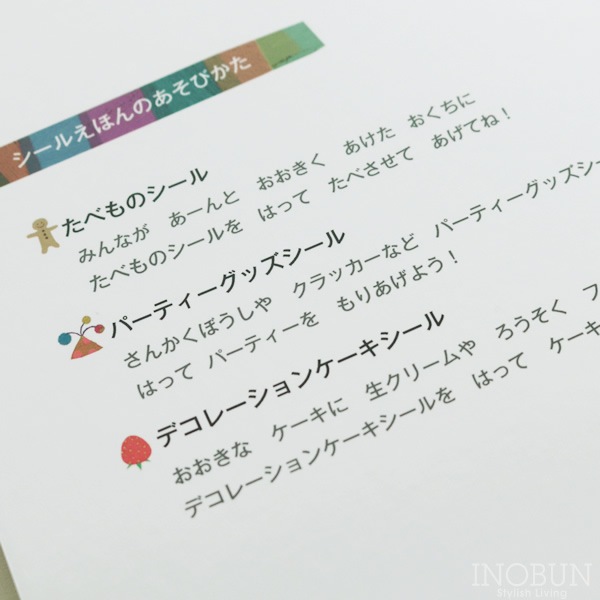 シールえほんのあそびかた
たべものシール
みんなが あーんと おおきく あけた おくちに
たべものシールを はって たべさせて あげてね！
パーティーグッズシール
さんかくぼうしや クラッカーなど パーティーグッズシー
はって パーティーを もりあげよう！
デコレーションケーキシール
おおきな ケーキに 生クリームや ろうそく フ
デコレーションケーキシールを はって ケーキ
INOBUN
Stylish Living